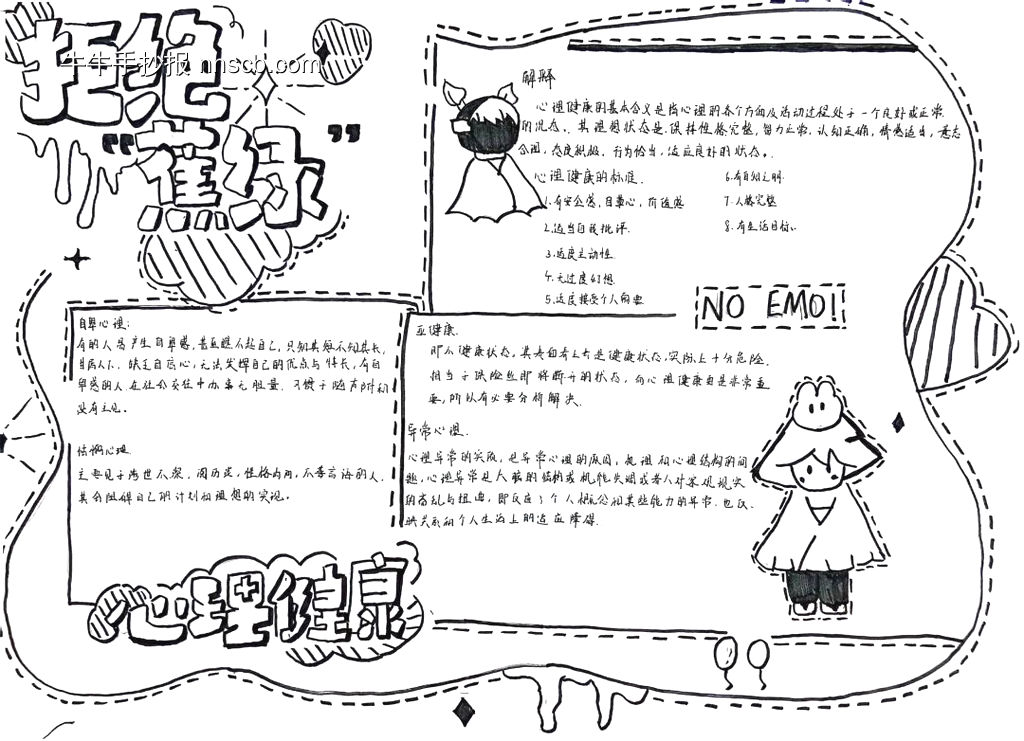 拒绝
牛牛手抄报 nhscb.com
"蕉绿"
解释
心理健康的基本含义是指心理的各个方面及活动过程处于一个良好或正常
的状态。其理想状态是保持性格完整,智力正常,认知正确,情感适当,意志
合理,态度积极,行为恰当,适应良好的状态。
心理健康的标准.
1.有安全感,自尊心,价值感
2.适当自我批评.
3.适度主动性.
4.无过度幻想
5.适度接受个人需要
6.有自知之明.
7.人格完整
8.有生活目标.
NO EMO!
自卑心理:
有的人易产生自卑感,甚至瞧不起自己,只知其短不知其长,
甘居人下,缺乏自信心,无法发挥自己的优点与特长,有自
卑感的人,在社会交往中办事无胆量,习惯于随声附和
没有主见。
怯懦心理.
主要见于涉世不深,阅历浅,性格内向,不善言语的人,
其会阻碍自己的计划和理想的实现。
亚健康.
即不健康状态,其表面看上去是健康状态,实际上十分危险,
相当于保险丝即将断开的状态,而心理健康也是非常重
要,所以有必要分析解决.
异常心理.
心理异常的实质,也异常心理的原因,机理和心理结构的问
题,心理异常是大脑的结构或机能失调或者人对客观现实
的紊乱与扭曲,即反应了个人概况和某些能力的异常,也反
映关系和个人生活上的适应障碍.
心理健康